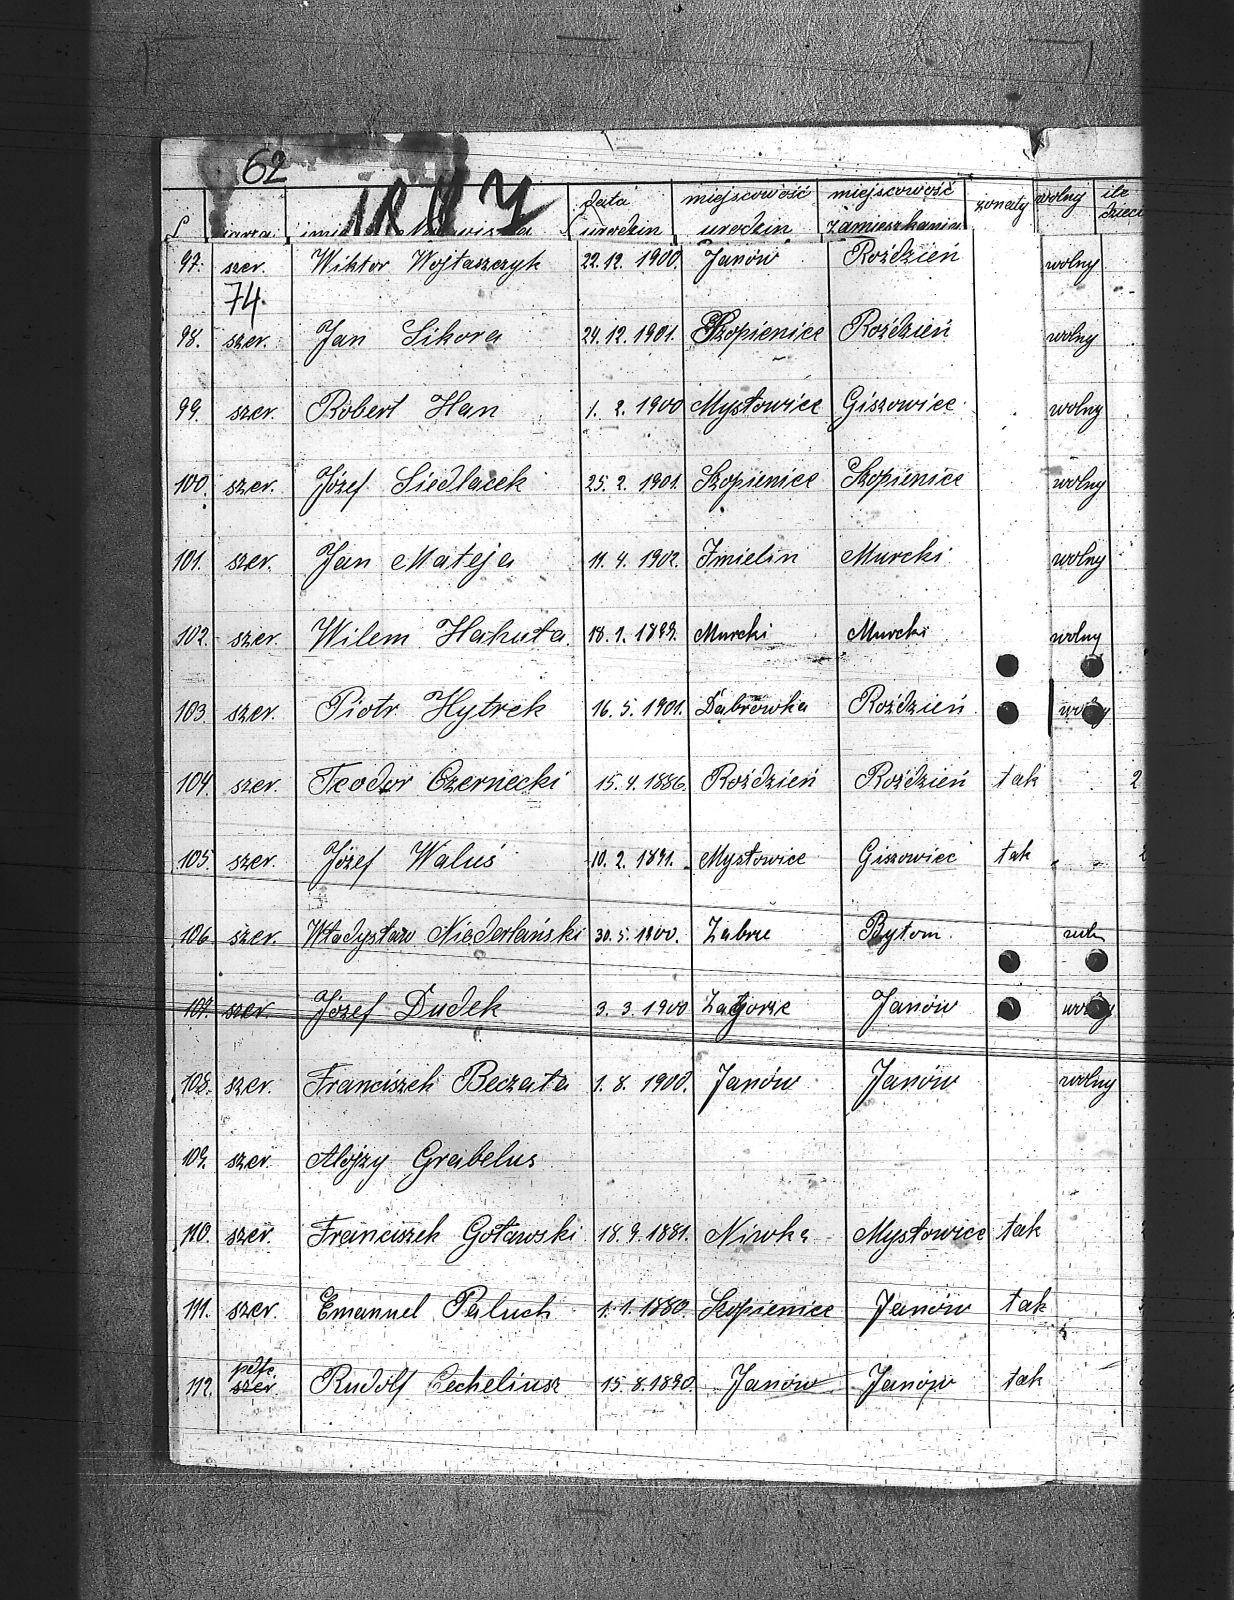 62
data miejscowość miejscowość żonaty wolny ile
urodzin urodzin zamieszkania dzieci
97. szer. Wiktor Wojtaszczyk 22.12.1900. Janów Roździeń wolny
74.
98. szer. Jan Sikora 24.12.1901. Szopienice Roździeń wolny
99. szer. Robert Han 1.2.1900 Mysłowice Giszowiec wolny
100. szer. Józef Siedlacek 25.2.1901. Szopienice Szopienice wolny
101. szer. Jan Mateja 11.4.1902. Imielin Murcki wolny
102. szer. Wilem Hakuta 18.1.1899. Murcki Murcki wolny
103. szer. Piotr Hytrek 16.5.1901. Dąbrówka Roździeń wolny
104. szer. Teodor Czernecki 15.4.1886. Roździeń Roździeń tak 2
105. szer. Józef Waluś 10.2.1891. Mysłowice Giszowiec tak
106. szer. Władysław Niederlański 30.5.1900. Zabrze Bytom
107. szer. Józef Dudek 3.3.1900 Zagorze Janów wolny
108. szer. Franciszek Beczała 1.8.1900. Janów Janów wolny
109. szer. Alojzy Grabelus
110. szer. Franciszek Goławski 18.9.1881. Niwka Mysłowice tak
111. szer. Emanuel Paluch 1.1.1880. Szopienice Janów tak
112. szer. Rudolf Cecheliusz 15.8.1890. Janów Janów tak